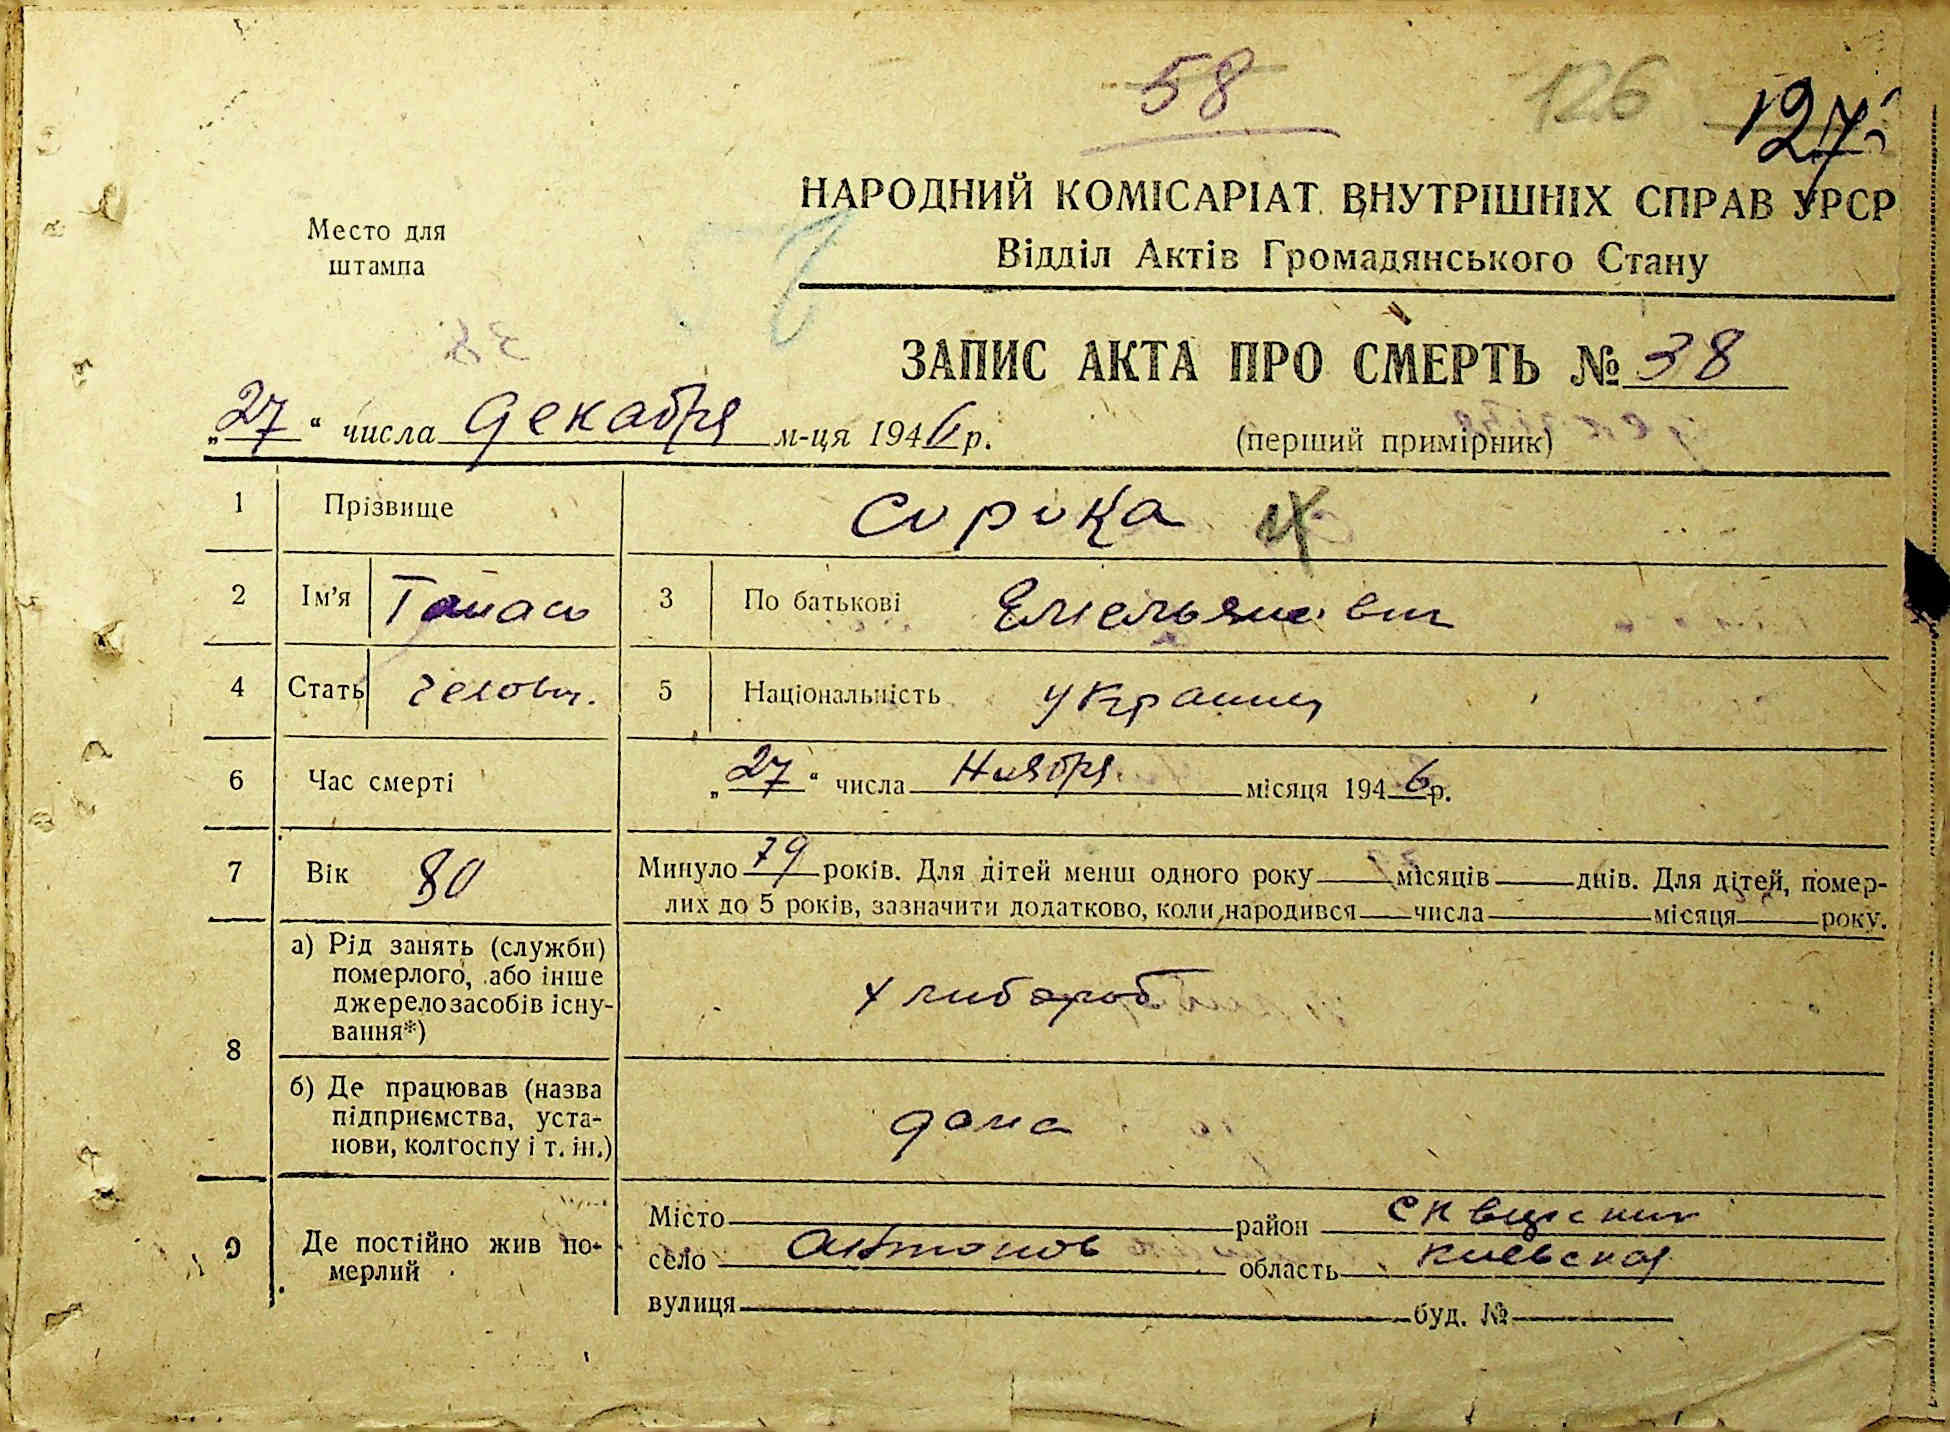 58 126 127
НАРОДНИЙ КОМІСАРІАТ ВНУТРІШНІХ СПРАВ УРСР
Відділ Актів Громадянського Стану
Место для
штампа
ЗАПИС АКТА ПРО СМЕРТЬ № 38
„27“ числа декабря м-ця 1946 р. (перший примірник)
1 Прізвище Сорока
2 Ім'я Танась 3 По батькові Емельянович
4 Стать человіч. 5 Національність украинец
6 Час смерті „27“ числа Ноября місяця 1946 р.
7 Вік 80 Минуло 79 років. Для дітей менш одного року місяців днів. Для дітей, помер-
лих до 5 років, зазначити додатково, коли народився числа місяця року.
8 а) Рід занять (служби)
померлого, або інше
джерело засобів існу-
вання*) хлибароб
б) Де працював (назва
підприємства, уста-
нови, колгоспу і т. ін.) дома
9 Де постійно жив по-
мерлий
Місто район Сквирский
село Антонов область Киевская
вулиця буд. №